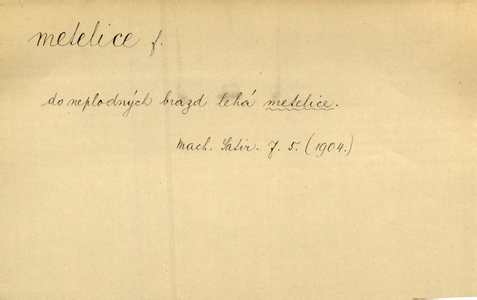 metelice f.
do neplodných brazd lehá metelice.
Mach. Satir. J. 5. (1904.)